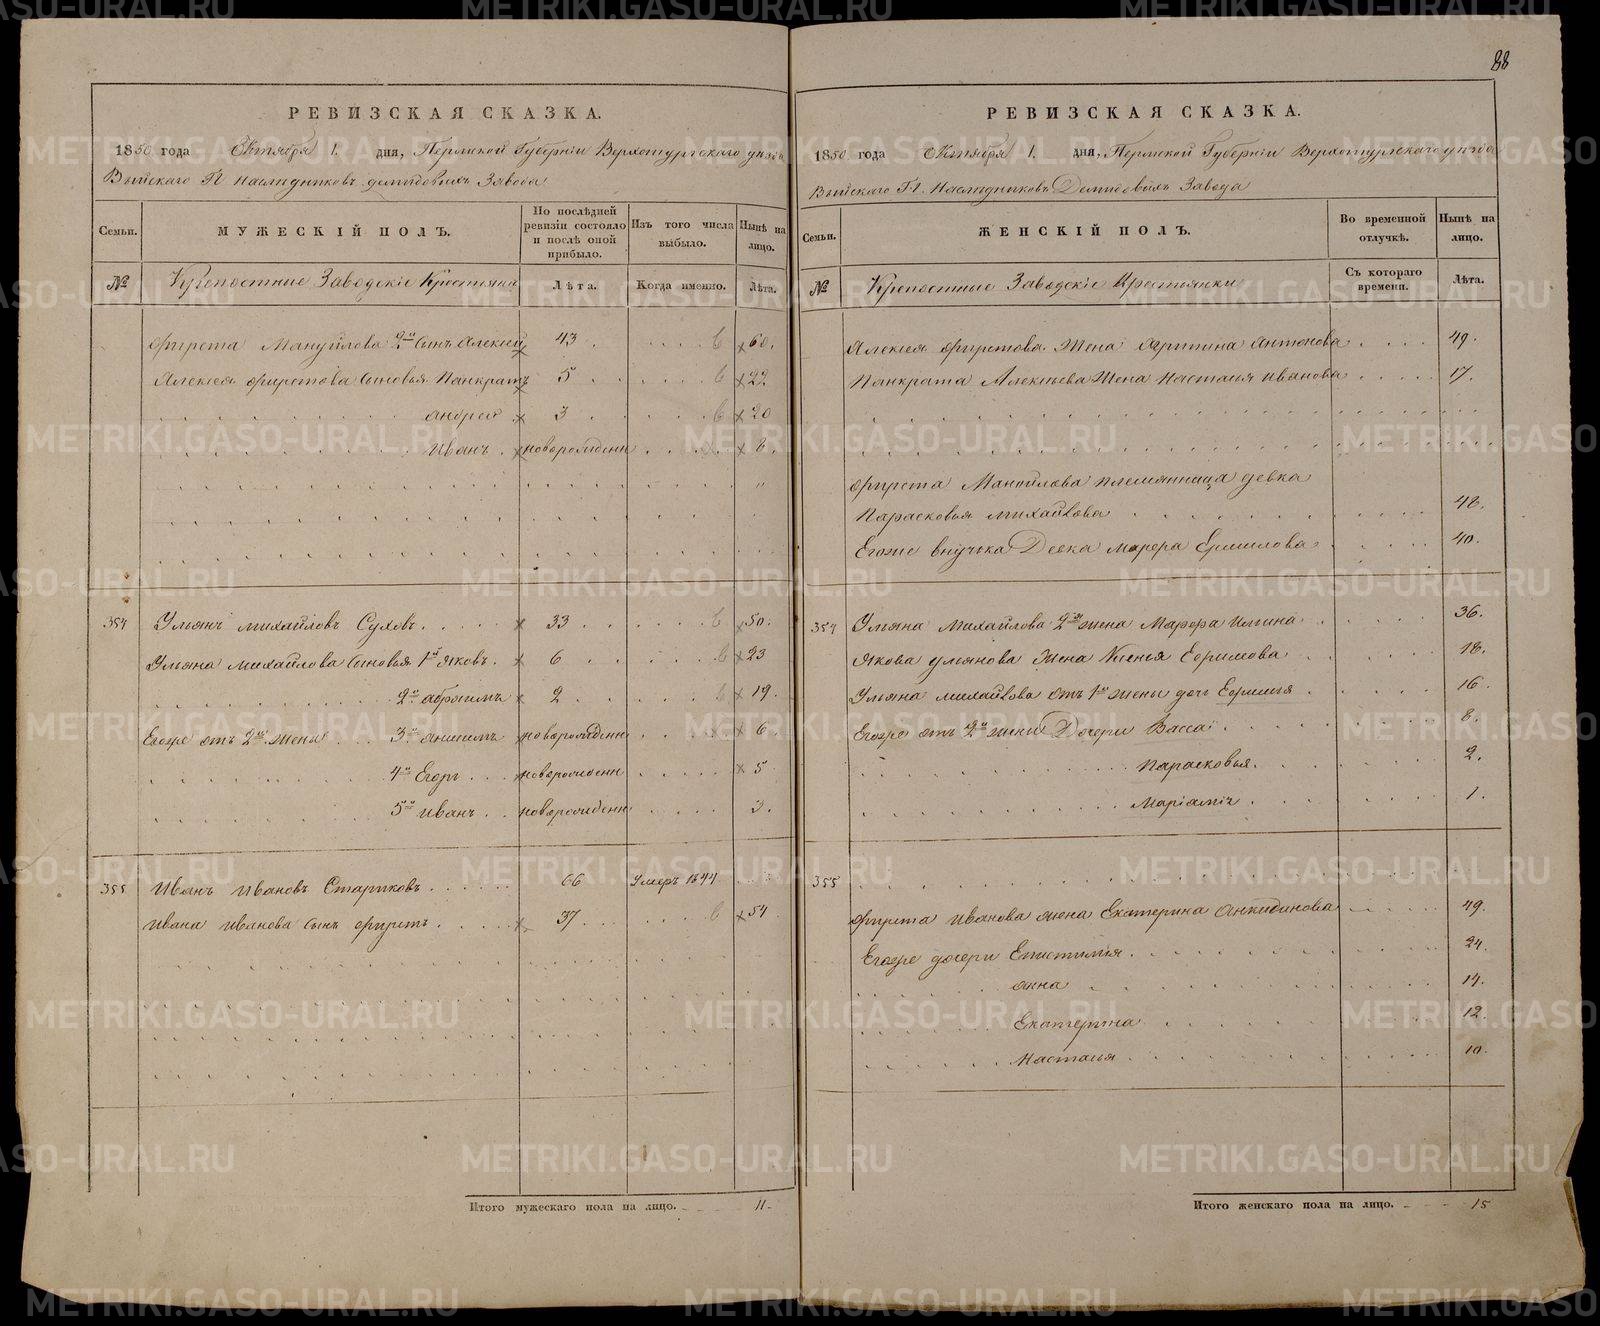 88
РЕВИЗСКАЯ СКАЗКА.
1850 года Октября 1. дня, Пермской Губерніи Верхотурскаго уѣзда
Выйскаго Г.г. наслѣдниковъ демидовыхъ Завода
Семьи. МУЖЕСКІЙ ПОЛЪ. По послѣдней ревизіи состояло и послѣ оной прибыло. Изъ того числа выбыло. Нынѣ на лицо.
№ Крепостные Заводскіе Крестьяна Лѣта. Когда именно. Лѣта.
Фирста Мануйлова 2й Сынъ Алексей 43 60.
Алексея Фирстова Сыновья Панкратъ 5 22
андрей 3 20
Иванъ новорожденн 8.
354 Ульянъ михайловъ Суховъ 33 50.
Ульяна михайлова Сыновья 1й Яковъ 6 23
2й абрамъ 2 19.
Егоже отъ 2й жены 3й анисимъ новорожденн 6.
4й Егоръ новорожденн 5
5й иванъ новорожденн 3.
355 Иванъ Ивановъ Стариковъ 66 Умеръ 1844
Ивана иванова сынъ Фирстъ 37 54
Итого мужескаго пола на лицо. 11
РЕВИЗСКАЯ СКАЗКА.
1850 года Октября 1. дня, Пермской Губерніи Верхотурскаго уѣзда
Выйскаго Г.г. Наслѣдниковъ Демидовыхъ Завода
Семьи. ЖЕНСКІЙ ПОЛЪ. Во временной отлучкѣ. Нынѣ на лицо.
№ Крепостные Заводскіе Крестьянки Съ котораго времени. Лѣта.
Алексея Фирстова Жена Харитина Антонова 49.
Панкрата Алексеева Жена Настасья иванова 17.
Фирста Манойлова племянница девка
Парасковья михайлова 48.
Егоже внучька Девка марфа Ермилова 40.
354 Ульяна Михайлова 2я жена Марфа Ильина 36.
Якова ульянова Жена Ксенья Ефимова 18.
Ульяна михайлова отъ 1й жены дочь Ефимья 16
Егоже отъ 2й жены Дочери Васса 8.
Парасковья. 2.
Маріамія 1.
355
Фирста Иванова жена Екатерина 49.
Егоже дочери Епистимія 24.
анна 14.
Екатерина 12.
Настасья 10.
Итого женскаго пола на лицо. 15
METRIKI.GASO-URAL.RU